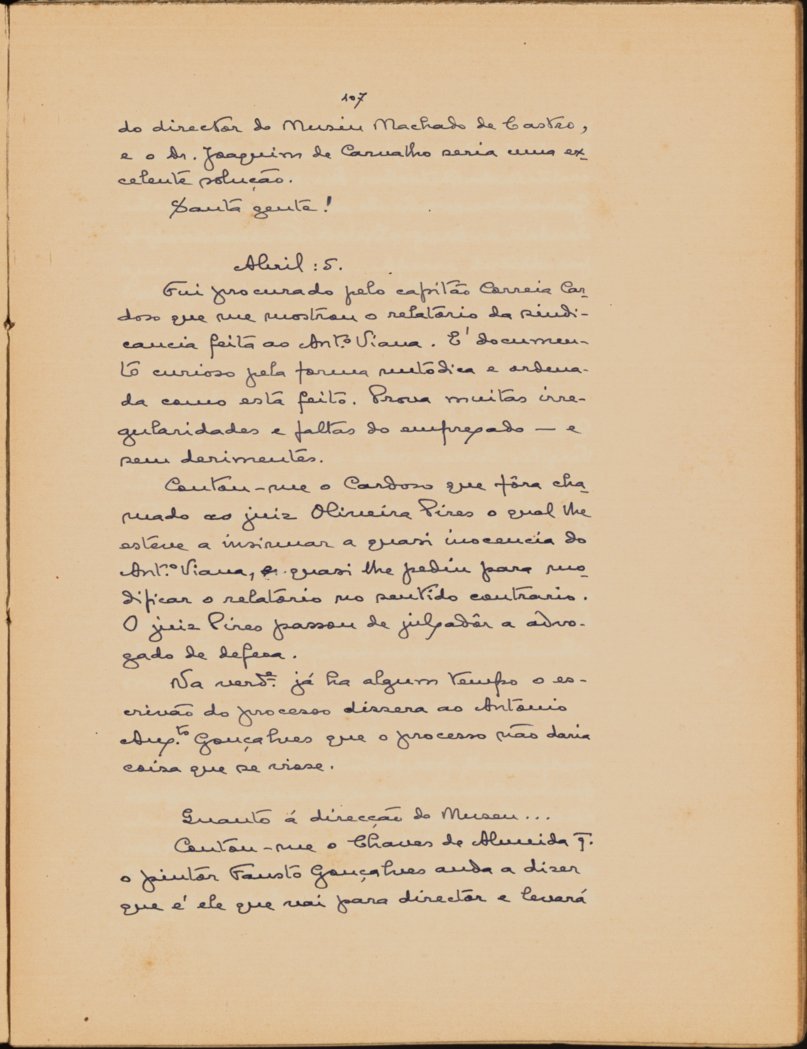 107
do director do Museu Machado de Castro,
e o Dr. Joaquim de Carvalho seria uma ex-
celente solução.
Santa gente!
Abril: 5.
Fui procurado pelo capitão Correia Car-
doso que me mostrou o relatório da sindi-
cancia feita ao Antº Viana. E' documen-
to curioso pela forma metódica e ordena-
da como está feito. Prova muitas irre-
gularidades e faltas do empregado — e
sem derimentes.
Contou-me o Cardoso que fôra cha-
mado ao juiz Oliveira Pires o qual lhe
esteve a insinuar a quasi inocencia do
Antº Viana, e quasi lhe pediu para mo-
dificar o relatório no sentido contrario.
O juiz Pires passou de julgadôr a advo-
gado de defesa.
Na verdª. já ha algum tempo o es-
crivão do processo dissera ao António
Augto Gonçalves que o processo não daria
coisa que se visse.
Quanto á direcção do Museu...
Contou-me o Chaves de Almeida q̄.
o pintor Fausto Gonçalves anda a dizer
que é ele que vai para director e levará